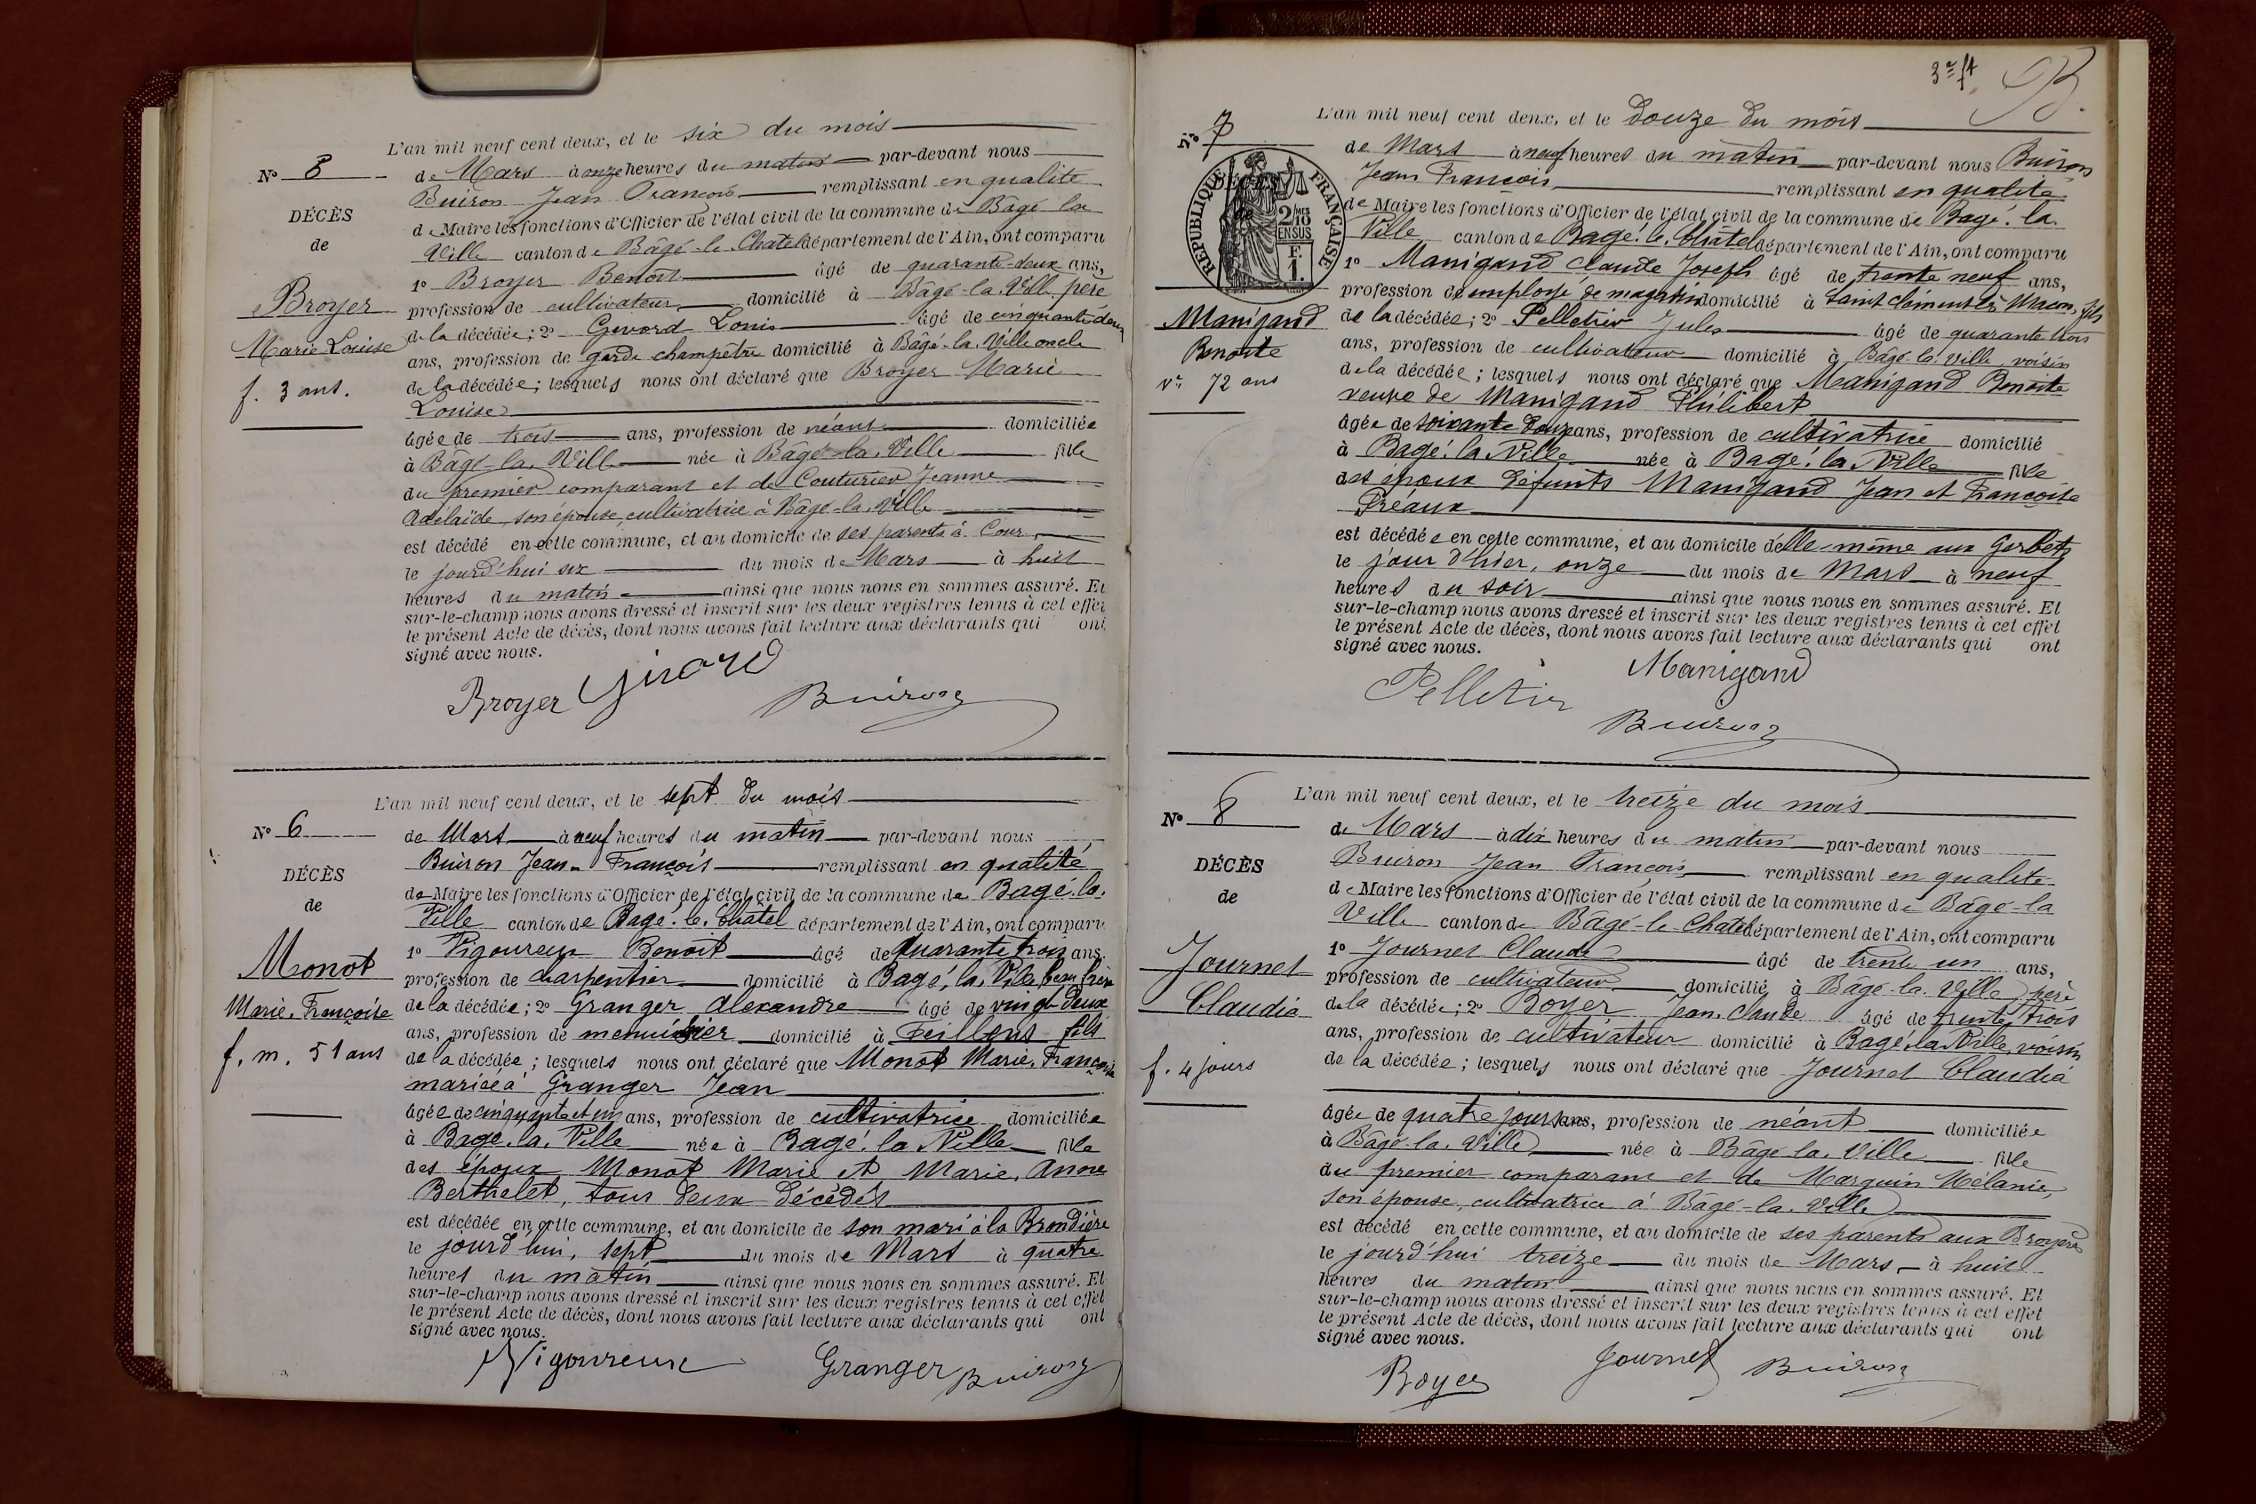 L'an mil neuf cent deux, et le six du mois
No 8
de Mars à onze heures du matin par-devant nous
Buiron Jean François remplissant en qualité
DÉCÈS
de Maire les fonctions d'Officier de l'état civil de la commune de Bâgé-la
de
Ville canton de Bâgé-le-Chatel département de l'Ain, ont comparu
1o Broyer Benoît âgé de quarante-deux ans,
Broyer
profession de cultivateur domicilié à Bâgé-la-Ville père
de la décédée; 2o Girard Louis âgé de cinquante deux
Marie Louise
ans, profession de garde champêtre domicilié à Bâgé-la-Ville oncle
f. 3 ans.
de la décédée; lesquels nous ont déclaré que Broyer Marie
Louise
âgée de trois ans, profession de néant domiciliée
à Bâgé-la-Ville née à Bâgé-la-Ville fille
du premier comparant et de Couturier Jeanne
Adélaïde, son épouse, cultivatrice à Bâgé-la-Ville
est décédé en cette commune, et au domicile de ses parents à Cour,
le jourd'hui six du mois de Mars à huit
heures du matin ainsi que nous nous en sommes assuré. Et
sur-le-champ nous avons dressé et inscrit sur les deux registres tenus à cet effet
le présent Acte de décès, dont nous avons fait lecture aux déclarants qui ont
signé avec nous.
Broyer Girard Buiron
L'an mil neuf cent deux, et le sept du mois
No 6
de Mars à neuf heures du matin par-devant nous
Buiron Jean-François remplissant en qualité
DÉCÈS
de Maire les fonctions d'Officier de l'état civil de la commune de Bagé-la-
de
Ville canton de Bagé-le-Châtel département de l'Ain, ont comparu
1o Vigoureux Benoît âgé de quarante trois ans,
Monot
profession de charpentier domicilié à Bagé-la-Ville beau frère
Marie-Françoise
de la décédée; 2o Granger Alexandre âgé de vingt-deux
ans, profession de menuisier domicilié à Peillons fils
f. m. 51 ans
de la décédée; lesquels nous ont déclaré que Monot Marie-Françoise
mariée à Granger Jean
âgée de cinquante et un ans, profession de cultivatrice domiciliée
à Bagé-la-Ville née à Bagé-la-Ville fille
des époux Monot Marie et Marie-Anne
Berthelet, tous deux décédés
est décédée en cette commune, et au domicile de son mari à la Brondière
le jourd'hui, sept du mois de Mars à quatre
heures du matin ainsi que nous nous en sommes assuré. Et
sur-le-champ nous avons dressé et inscrit sur les deux registres tenus à cet effet
le présent Acte de décès, dont nous avons fait lecture aux déclarants qui ont
signé avec nous.
Vigoureux Granger Buiron
L'an mil neuf cent deux, et le douze du mois
No 7
de Mars à neuf heures du matin par-devant nous Buiron
Jean François remplissant en qualité
RÉPUBLIQUE FRANÇAISE
2/10 MES EN SUS
1 F.
de Maire les fonctions d'Officier de l'état civil de la commune de Bagé-la-
Ville canton de Bagé-le-Châtel département de l'Ain, ont comparu
1o Manigand Claude Joseph âgé de trente neuf ans,
profession de employé de magasin domicilié à Saint Clément lès Macon, fils
Manigand
de la décédée; 2o Pelletier Jules âgé de quarante trois
Benoite
ans, profession de cultivateur domicilié à Bâgé-la-Ville voisin
ve 72 ans
de la décédée; lesquels nous ont déclaré que Manigand Benoite
veuve de Manigand Philibert
âgée de soixante douze ans, profession de cultivatrice domicilié
à Bagé-la-Ville née à Bagé-la-Ville fille
des époux défunts Manigand Jean et Françoise
Préaux
est décédée en cette commune, et au domicile d'elle-même aux Gerbets
le jour d'hier, onze du mois de Mars à neuf
heures du soir ainsi que nous nous en sommes assuré. Et
sur-le-champ nous avons dressé et inscrit sur les deux registres tenus à cet effet
le présent Acte de décès, dont nous avons fait lecture aux déclarants qui ont
signé avec nous.
Manigand
Pelletier
Buiron
L'an mil neuf cent deux, et le treize du mois
No 8
de Mars à dix heures du matin par-devant nous
Buiron Jean François remplissant en qualité
DÉCÈS
de Maire les fonctions d'Officier de l'état civil de la commune de Bâgé-la
de
Ville canton de Bâgé-le-Chatel département de l'Ain, ont comparu
1o Journet Claude âgé de trente un ans,
Journet
profession de cultivateur domicilié à Bâgé-la-Ville, père
Claudia
de la décédée; 2o Boyer Jean-Claude âgé de trente trois
ans, profession de cultivateur domicilié à Bagé-la-Ville, voisin
f. 4 jours
de la décédée; lesquels nous ont déclaré que Journet Claudia
âgée de quatre jours ans, profession de néant domiciliée
à Bâgé-la-Ville née à Bâgé-la-Ville fille
du premier comparant et de Marguin Mélanie,
son épouse, cultivatrice à Bâgé-la-Ville
est décédé en cette commune, et au domicile de ses parents aux Broyers
le jourd'hui treize du mois de Mars, à huit
heures du matin ainsi que nous nous en sommes assuré. Et
sur-le-champ nous avons dressé et inscrit sur les deux registres tenus à cet effet
le présent Acte de décès, dont nous avons fait lecture aux déclarants qui ont
signé avec nous.
Boyer Journet Buiron